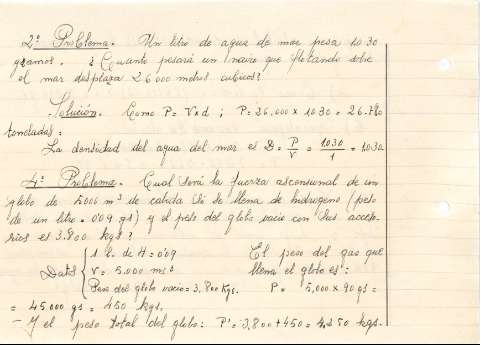 2º Problema. Un litro de agua de mar pesa 1030
gramos. ¿ Cuanto pesará un navio que flotando sobre
el mar desplaza 26000 metros cubicos?
Solución. Como P = V x d ; P = 26,000 x 1030 = 26.780
toneladas :
La densidad del agua del mar es D = P/V = 1030/1 = 1030.
4º Problema. Cual será la fuerza ascensional de un
globo de 5000 m³ de cabida si se llena de hidrogeno (peso
de un litro = 0'09 gs) y el peso del globo vacio con sus acceso-
rios es 3.800 kgs.?
Datos { 1 l. de H = 0'09
V = 5.000 ms³
Peso del globo vacio = 3,800 Kgs.
El peso del gas que
llena el globo es:
P = 5,000 x 90 gs =
= 45000 gs = 450 kgs.
- Y el peso total del globo: P' = 3,800 + 450 = 4,250 kgs.